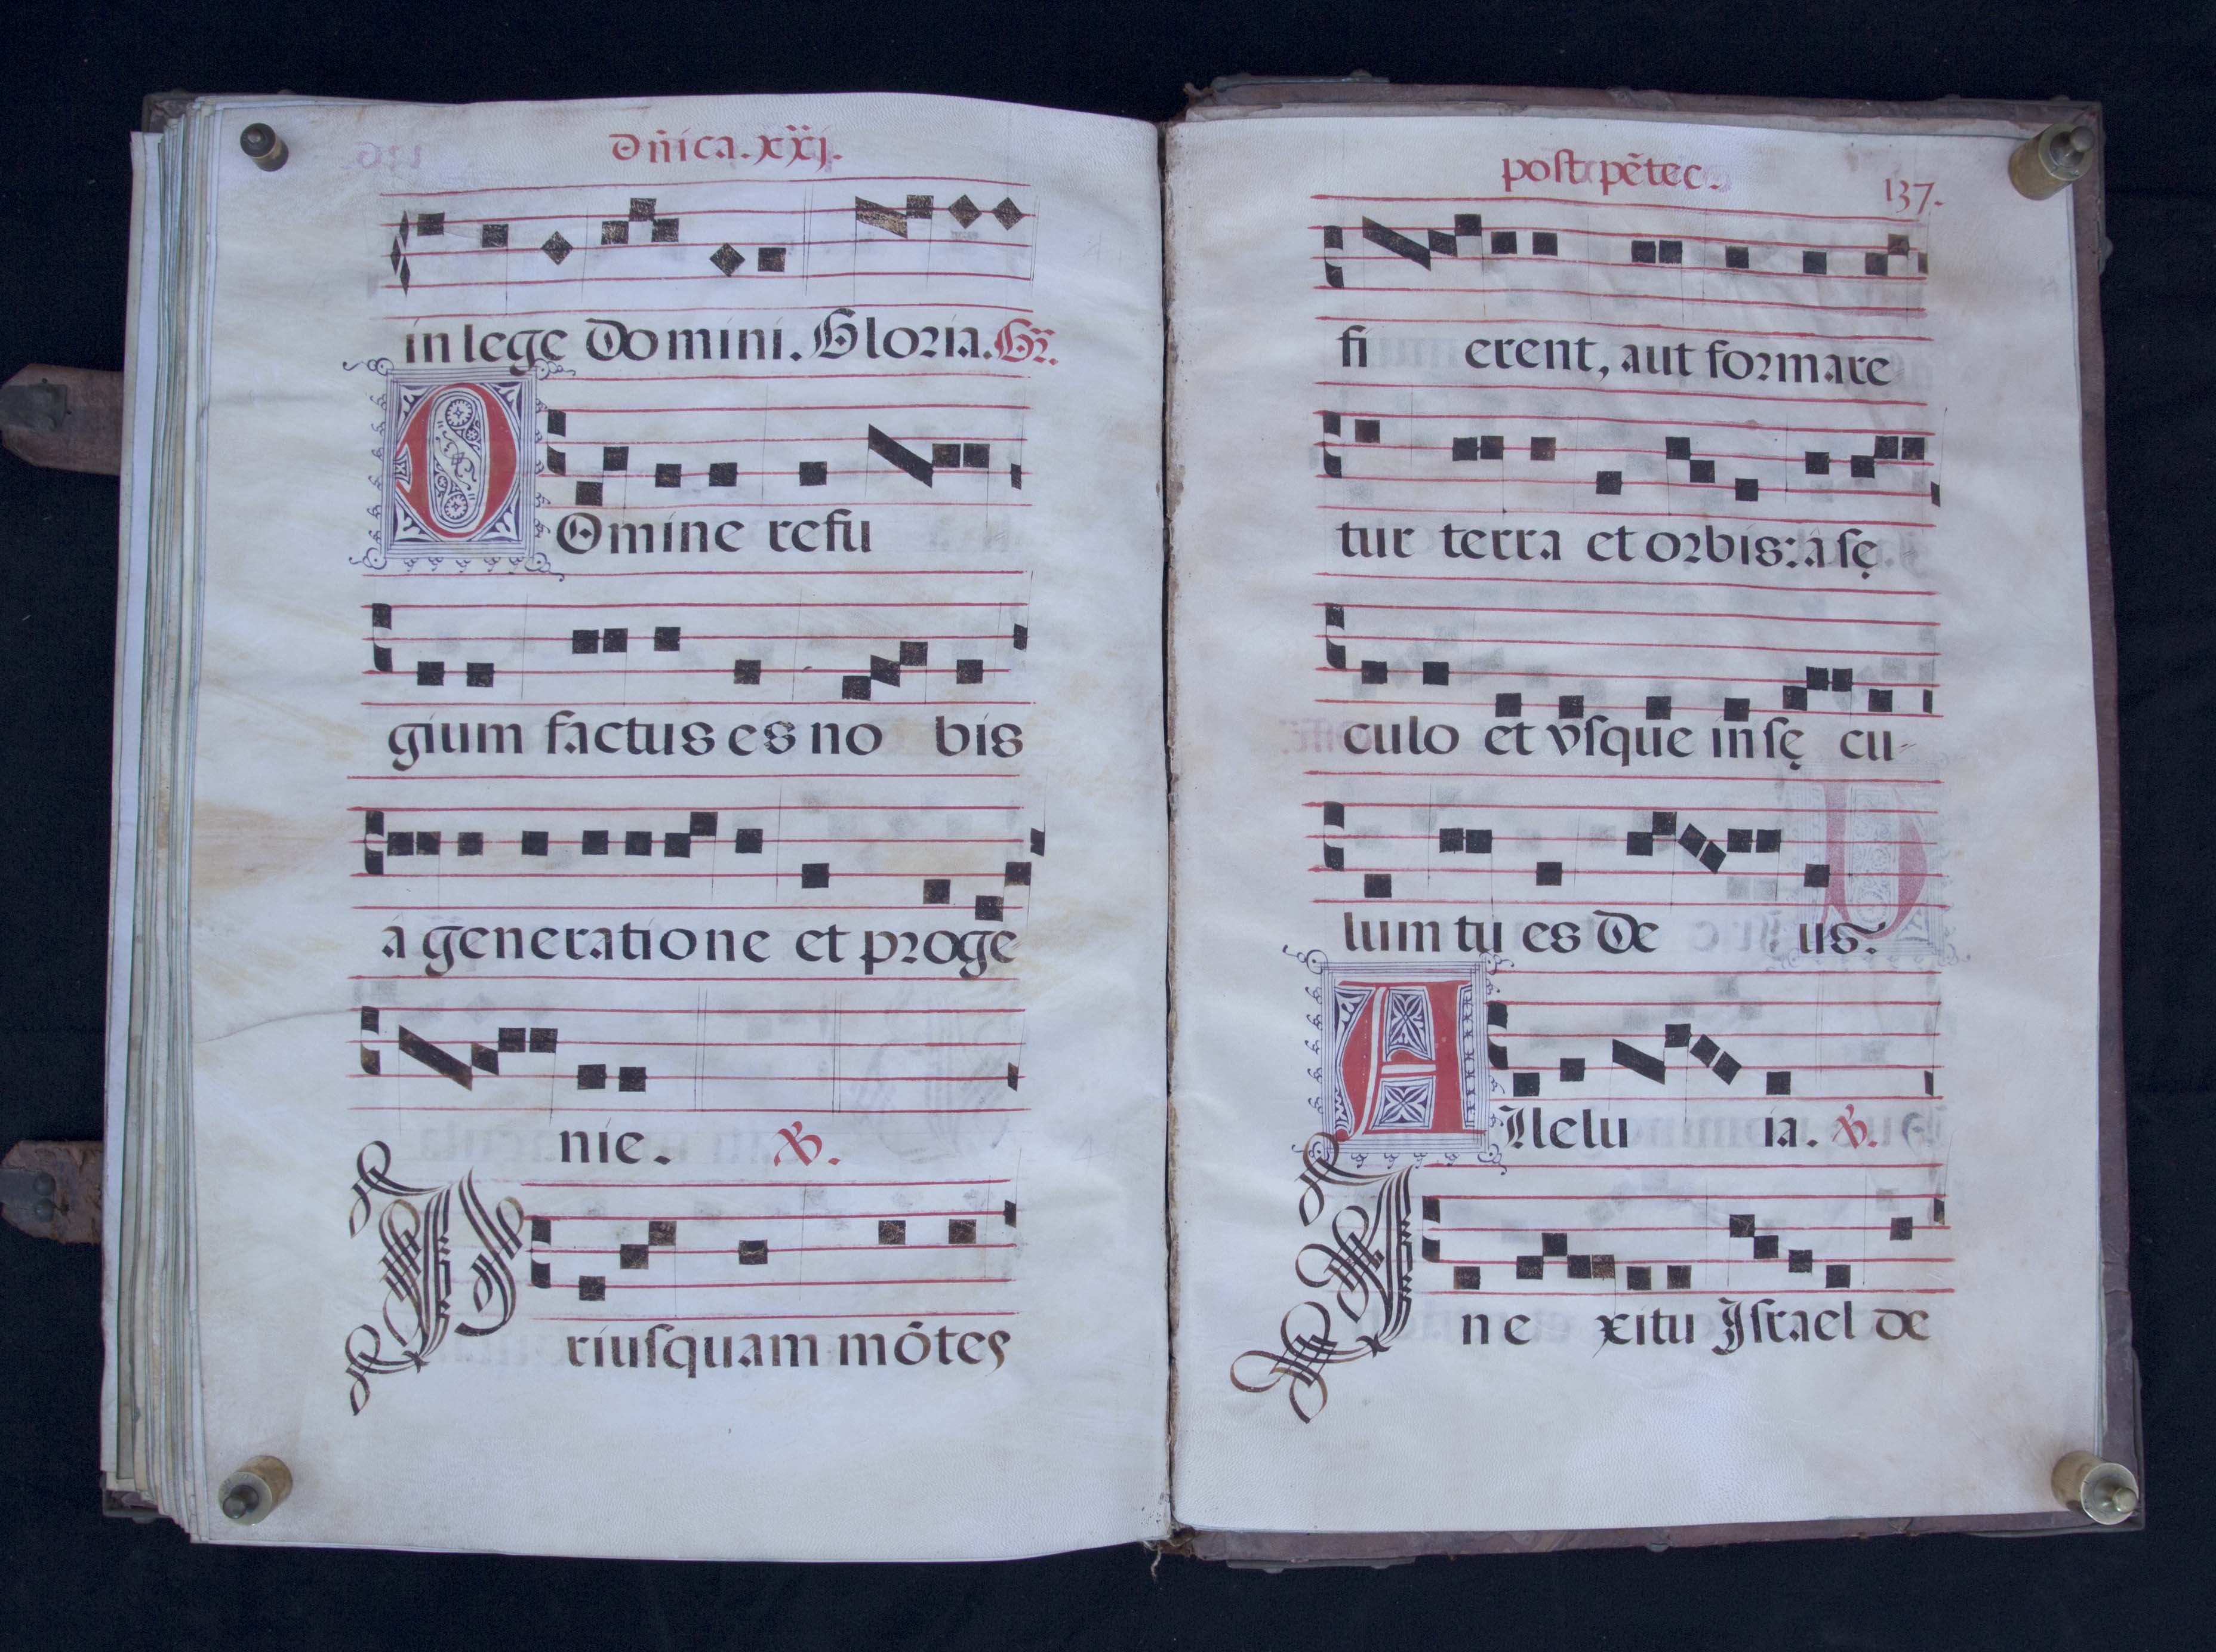 Dñica.xxj.
in lege Domini. Gloria. Gr.
DOmine refu
gium factus es no bis
à generatione et proge
nie. ꝟ.
Priuſquam mõtes
poſt pẽtec.
137.
fi erent, aut formare
tur terra et orbis: à ſę
culo et vſque in ſę cu-
lum tu es De us.
Allelu ia. ꝟ.
Jn e xitu Jſrael de